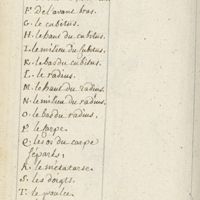 F. De l'avant bras.
G. le cubitus.
H. le haut du cubitus.
I. le milieu du cubitus.
K. le bas du cubitus.
L. le radius.
M. le haut du radius.
N. le milieu du radius.
O. le bas du radius.
P. le carpe.
Q. les os du carpe
separés.
R. le metacarpe.
S. les doigts.
T. le poulce.